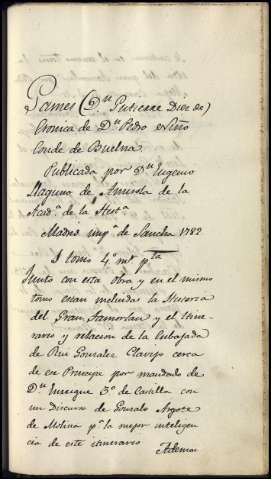 Games (Dn Gutierre Diez de)
Cronica de Dn Pedro Niño
Conde de Buelna
Publicada por Dn Eugenio
Llaguno de Amirola de la
Acada de la Hista
Madrid impa de Sancha 1782
1 tomo 4º mr pta
Junto con esta obra y en el mismo
tomo estan incluidas la Historia
del Gran Tamorlan y el itine-
rario y relacion de la Embajada
de Rui Gonzalez Clavijo cerca
de ese Principe por mandado de
Dn Enrique 3º de Castilla con
un Discurso de Gonzalo Argote
de Molina pa la mejor inteligen
cia de este itinerario
Ademas